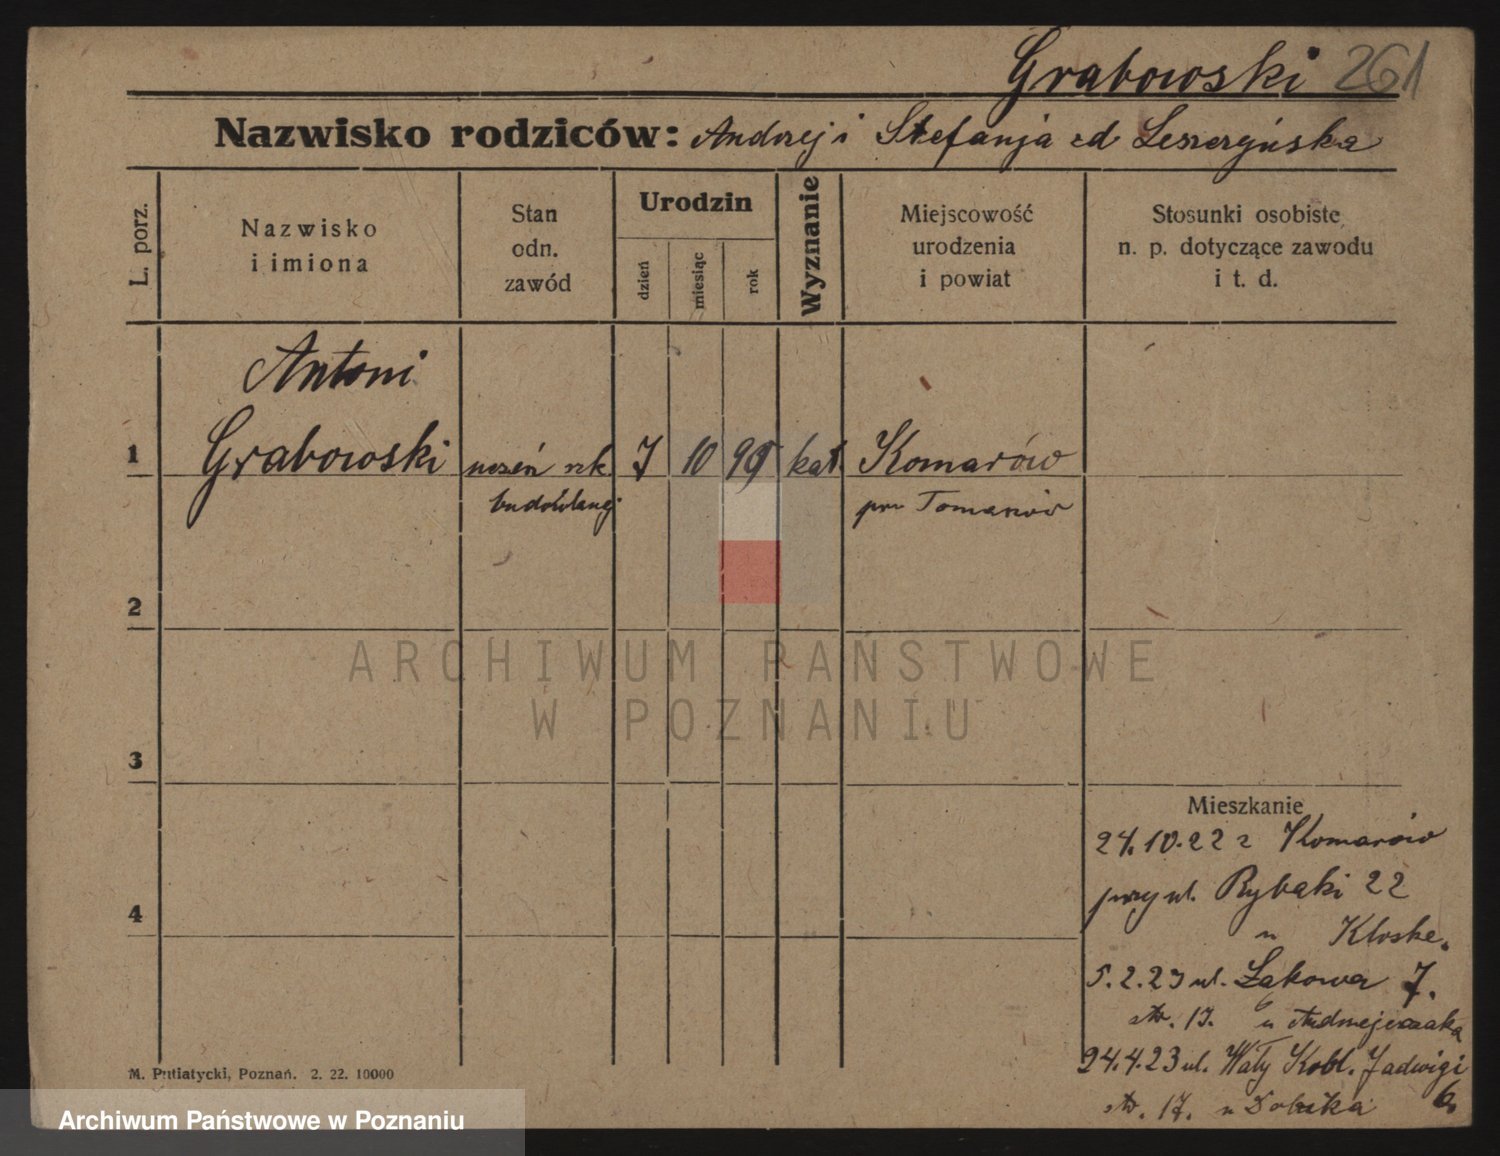 Grabowski 261
Nazwisko rodziców: Andrzej i Stefanja zd Leszczyńska
L. porz.
Nazwisko
i imiona
Stan
odn.
zawód
Urodzin
dzień
miesiąc
rok
Wyznanie
Miejscowość
urodzenia
i powiat
Stosunki osobiste
n. p. dotyczące zawodu
i t. d.
Antoni
1 Grabowski uczeń szk. 7 10 99 kat. Komarów
budowlanej
pow Tomaszów
2
ARCHIWUM PAŃSTWOWE
W POZNANIU
3
Mieszkanie
24.10.22 z Komarów
przy ul. Rybaki 22
4
u Kloske.
5.2.23 ul. Łąkowa 7.
str. 17. u Andrzejczaka
24.4.23 ul. Wały Kobl. Jadwigi
str. 17. u 6.
M. Putiatycki, Poznań. 2. 22. 10000
Archiwum Państwowe w Poznaniu